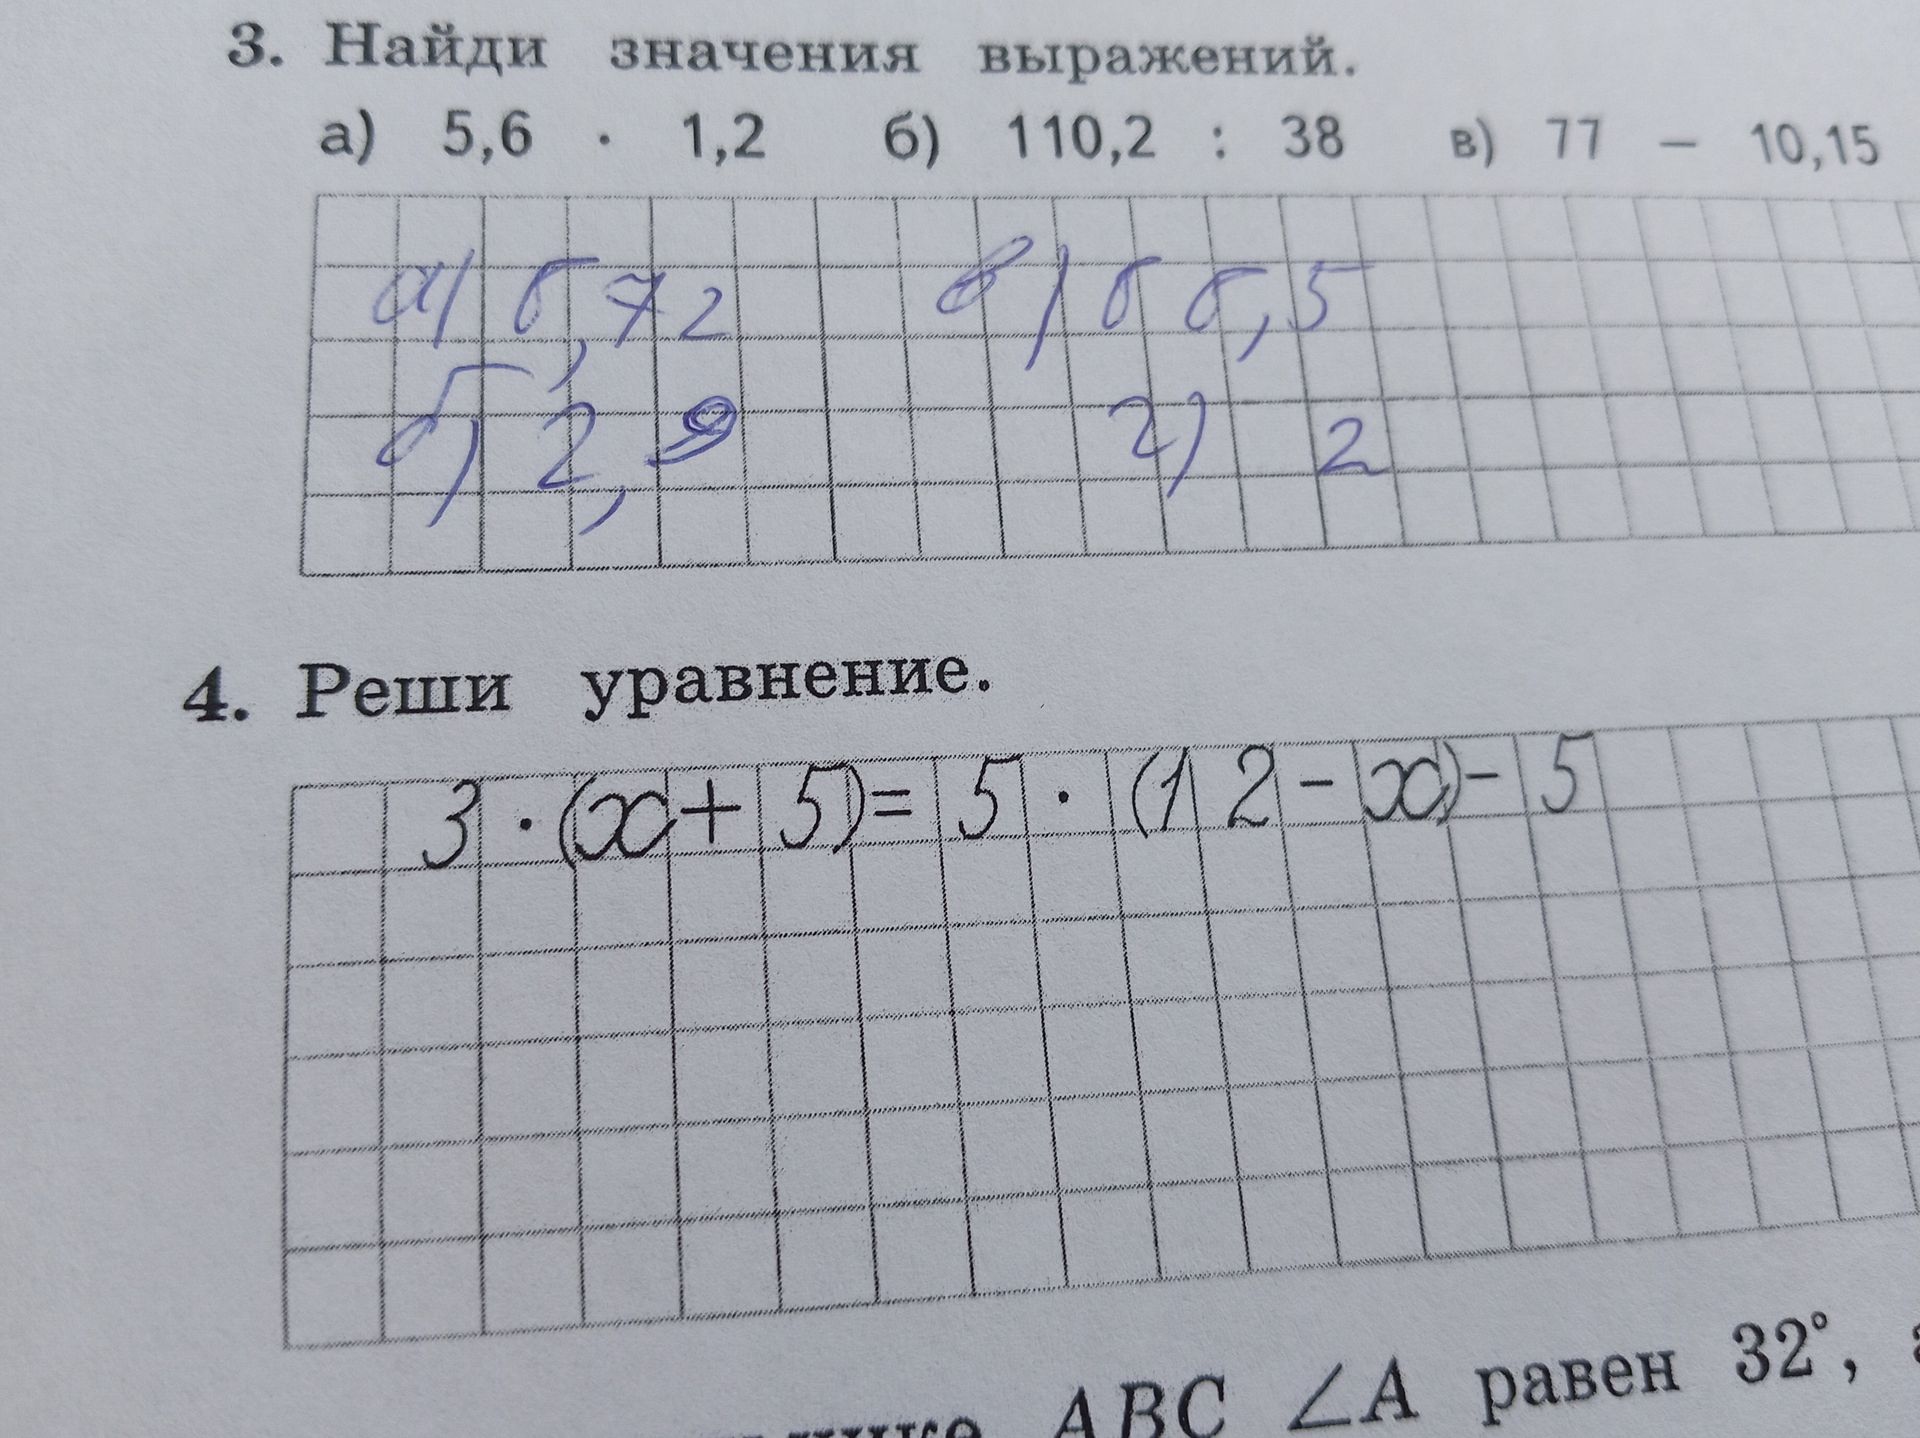 3. Найди значения выражений.
а) 5,6 · 1,2 б) 110,2 : 38 в) 77 – 10,15
а) 6,72 в) 66,5
б) 2,9 г) 2
4. Реши уравнение.
3 · (x + 5) = 5 · (12 - x) - 5
ABC ∠A равен 32°,